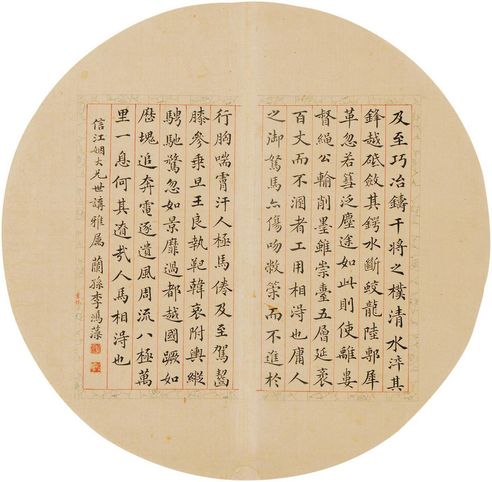 及至巧冶鑄干將之樸清水淬其
鋒越砥斂其鍔水斷蛟龍陸剸犀
革忽若篲泛塵途如此則使離婁
督繩公輸削墨雖崇臺五層延袤
百丈而不溷者工用相得也庸人
之御駑馬亦傷吻敝策而不進於
行胸喘膚汗人極馬倦及至駕齧
膝參乘旦王良執靶韓哀附輿縱
騁馳騖忽如景靡過都越國蹶如
歷塊追奔電逐遺風周流八極萬
里一息何其遼哉人馬相得也
信江姻大兄世講雅屬 蘭孫李鴻藻